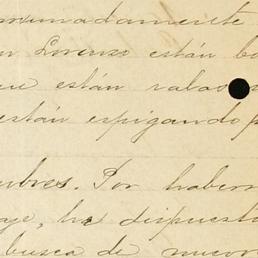 orunadamente
n Lorenzo están bo
ue están rabos
están espigando p
ubres. Por habern
aje, he dispuesto
busca de nuevo